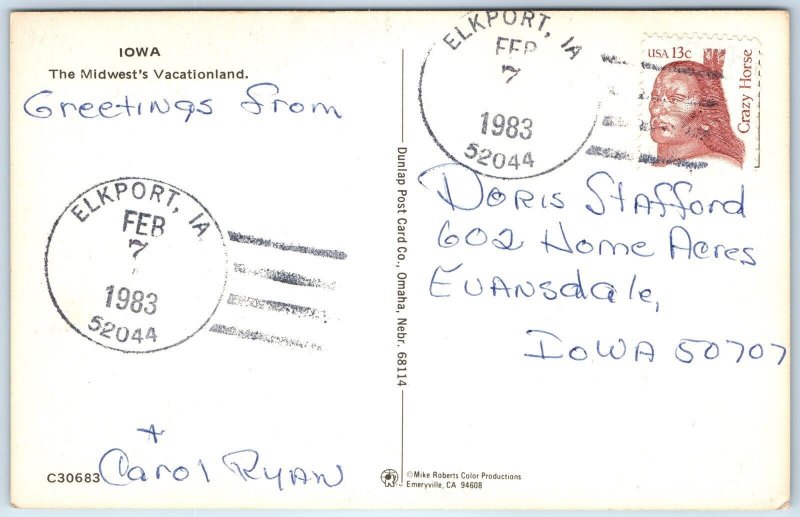 IOWA
The Midwest's Vacationland.
Greetings from
ELKPORT, IA
FEB
7
1983
52044
+
Carol Ryan
C30683
Dunlap Post Card Co., Omaha, Nebr. 68114
ELKPORT, IA
FEB
7
1983
52044
USA 13c
Crazy Horse
Doris Stafford
602 Home Acres
Evansdale,
Iowa 50707
©Mike Roberts Color Productions
Emeryville, CA 94608